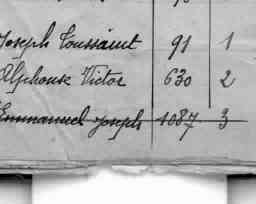 Joseph Toussaint 91 1
Alphonse Victor 630 2
Emmanuel Joseph 1087 3